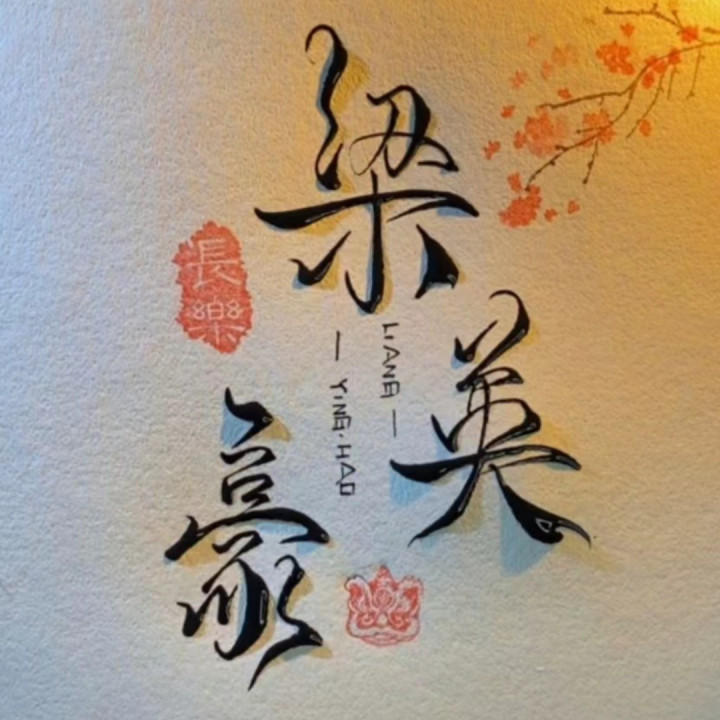 梁
英
豪
LIANG —
— YING·HAO
長樂